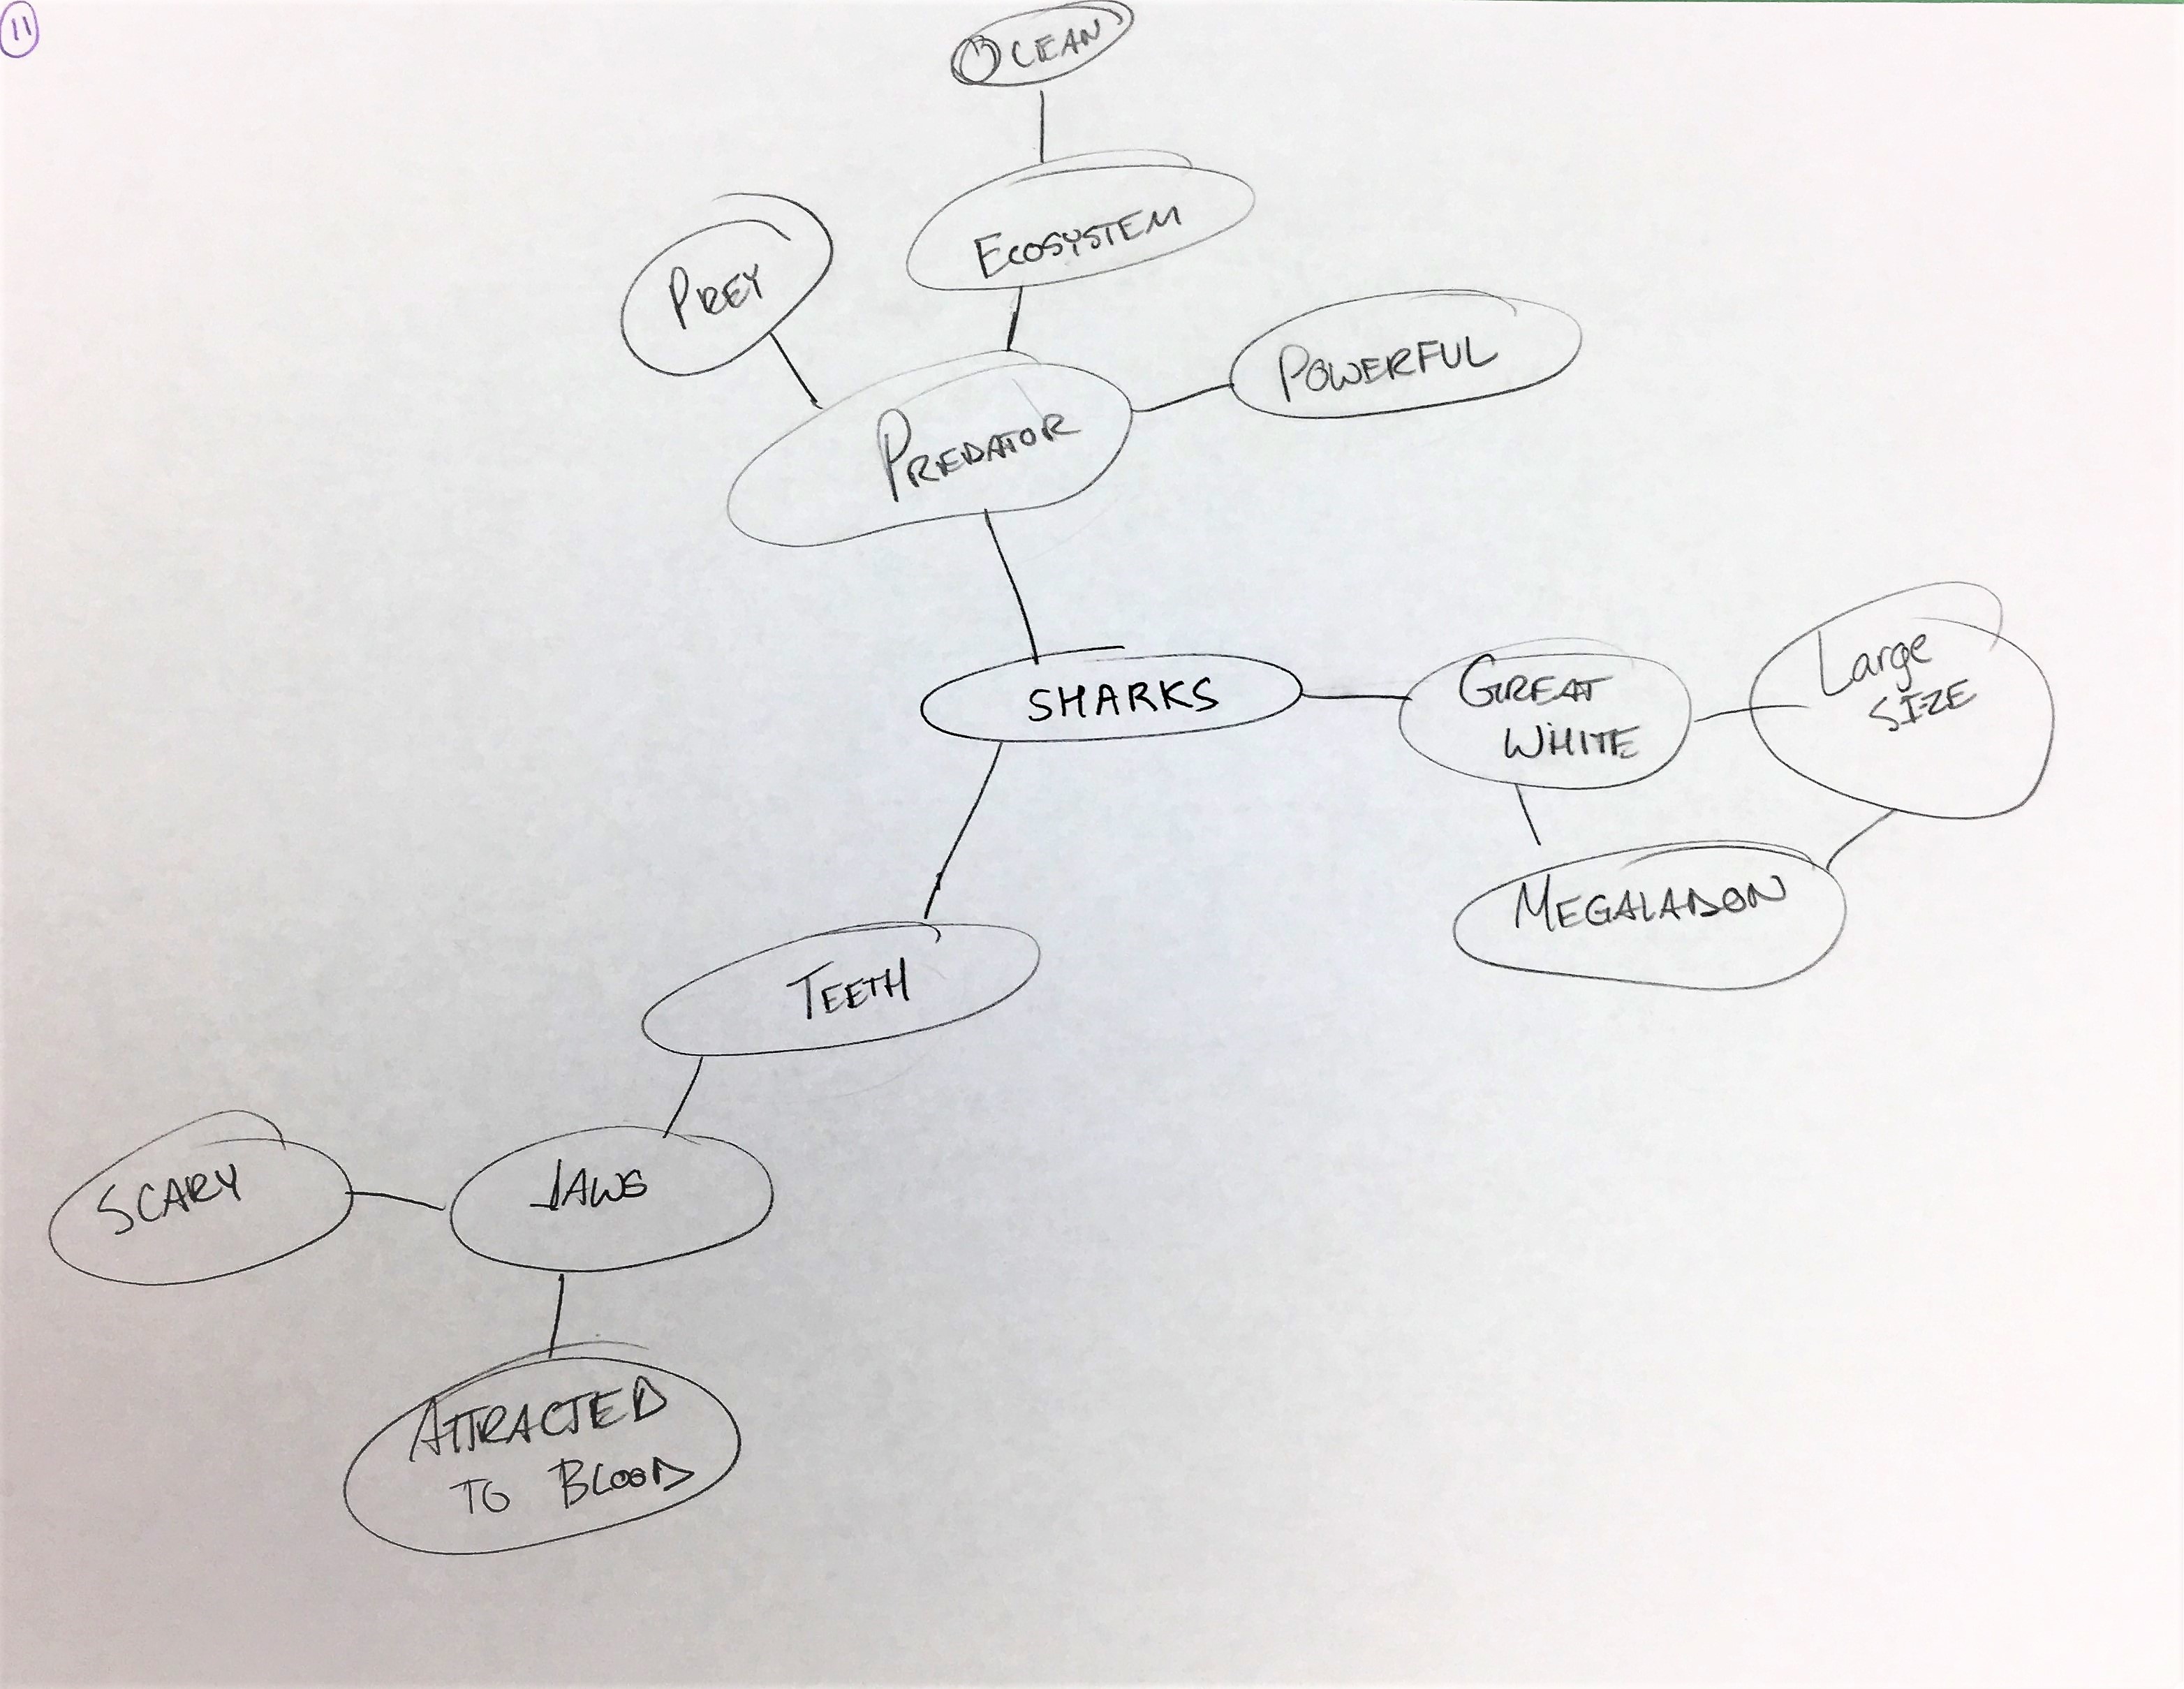 11
OCEAN
ECOSYSTEM
PREY
POWERFUL
PREDATOR
SHARKS
GREAT
WHITE
Large
SIZE
MEGALADON
TEETH
JAWS
SCARY
ATTRACTED
TO BLOOD